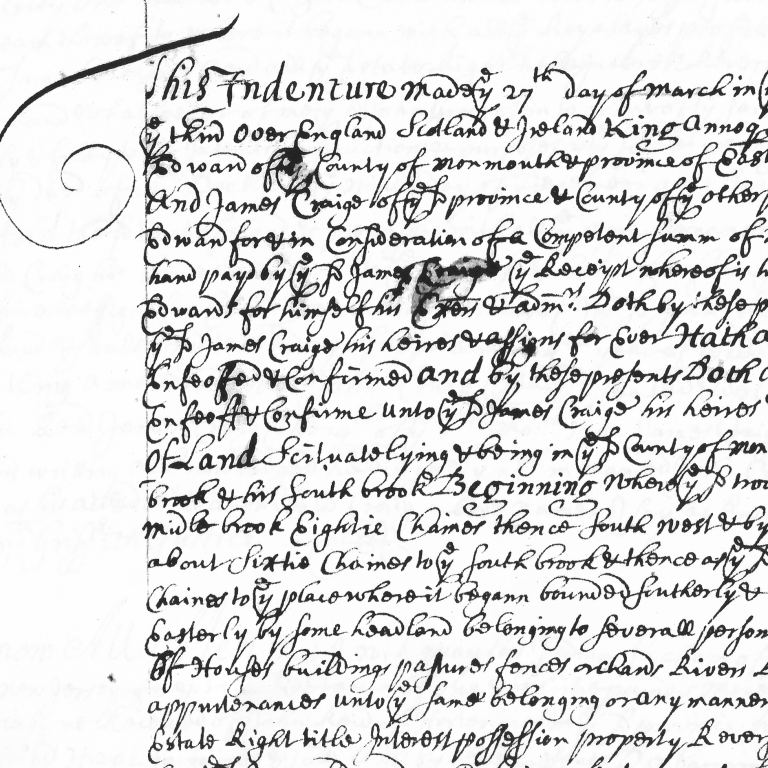 This Indenture made yͤ 27th day of march in
yͤ third over England Scotland & Ireland King Annoq
Edward of County of monmouth & province of East
And James Craige of yͤ sd province & County of yͤ other
Edward for & in Consideration of a Competent summ of
hand payd by yͤ sd James Craige yͤ Receipt whereof
Edward for himself his Exers & admrs. Doth by these p
yͤ sd James Craige his heires & assigns for Ever Hath
Enfeoffed & Confirmed and by these presents Doth
Enfeoff & Confirme unto yͤ sd James Craige his heires
Of Land Scituate lying & being in yͤ sd County of mon
brook & his south brook Beginning where yͤ sd
midle brook Eightie Chaines thence South west & by
about Sixtie Chaines to yͤ south brook & thence as yͤ sd
Chaines to yͤ place where it begann bounded sutherly &
Easterly by some headland belonging to severall person
Of Houses buildings pastures fences orchards Rivers
appurtenances unto yͤ same belonging or any manner
Estate Right title Interest possession property Rever